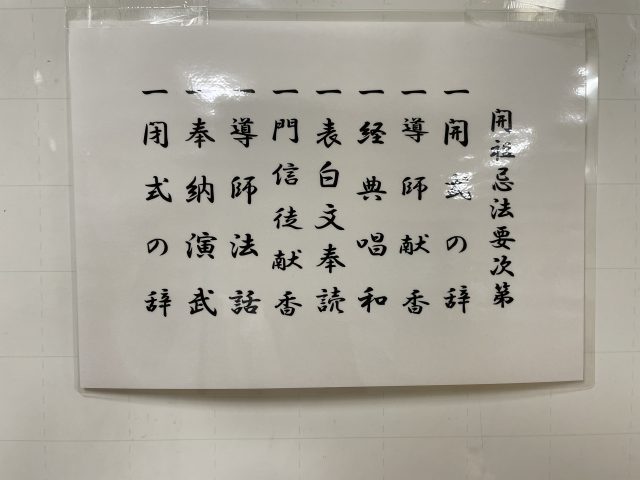 開祖忌法要次第
一開式の辞
一導師献香
一経典唱和
一表白文奉読
一門信徒献香
一導師法話
一奉納演武
一閉式の辞